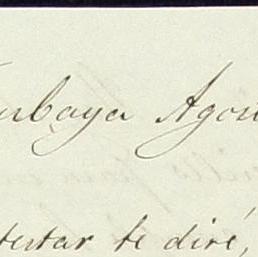 urbaya Agos
testar te diré,